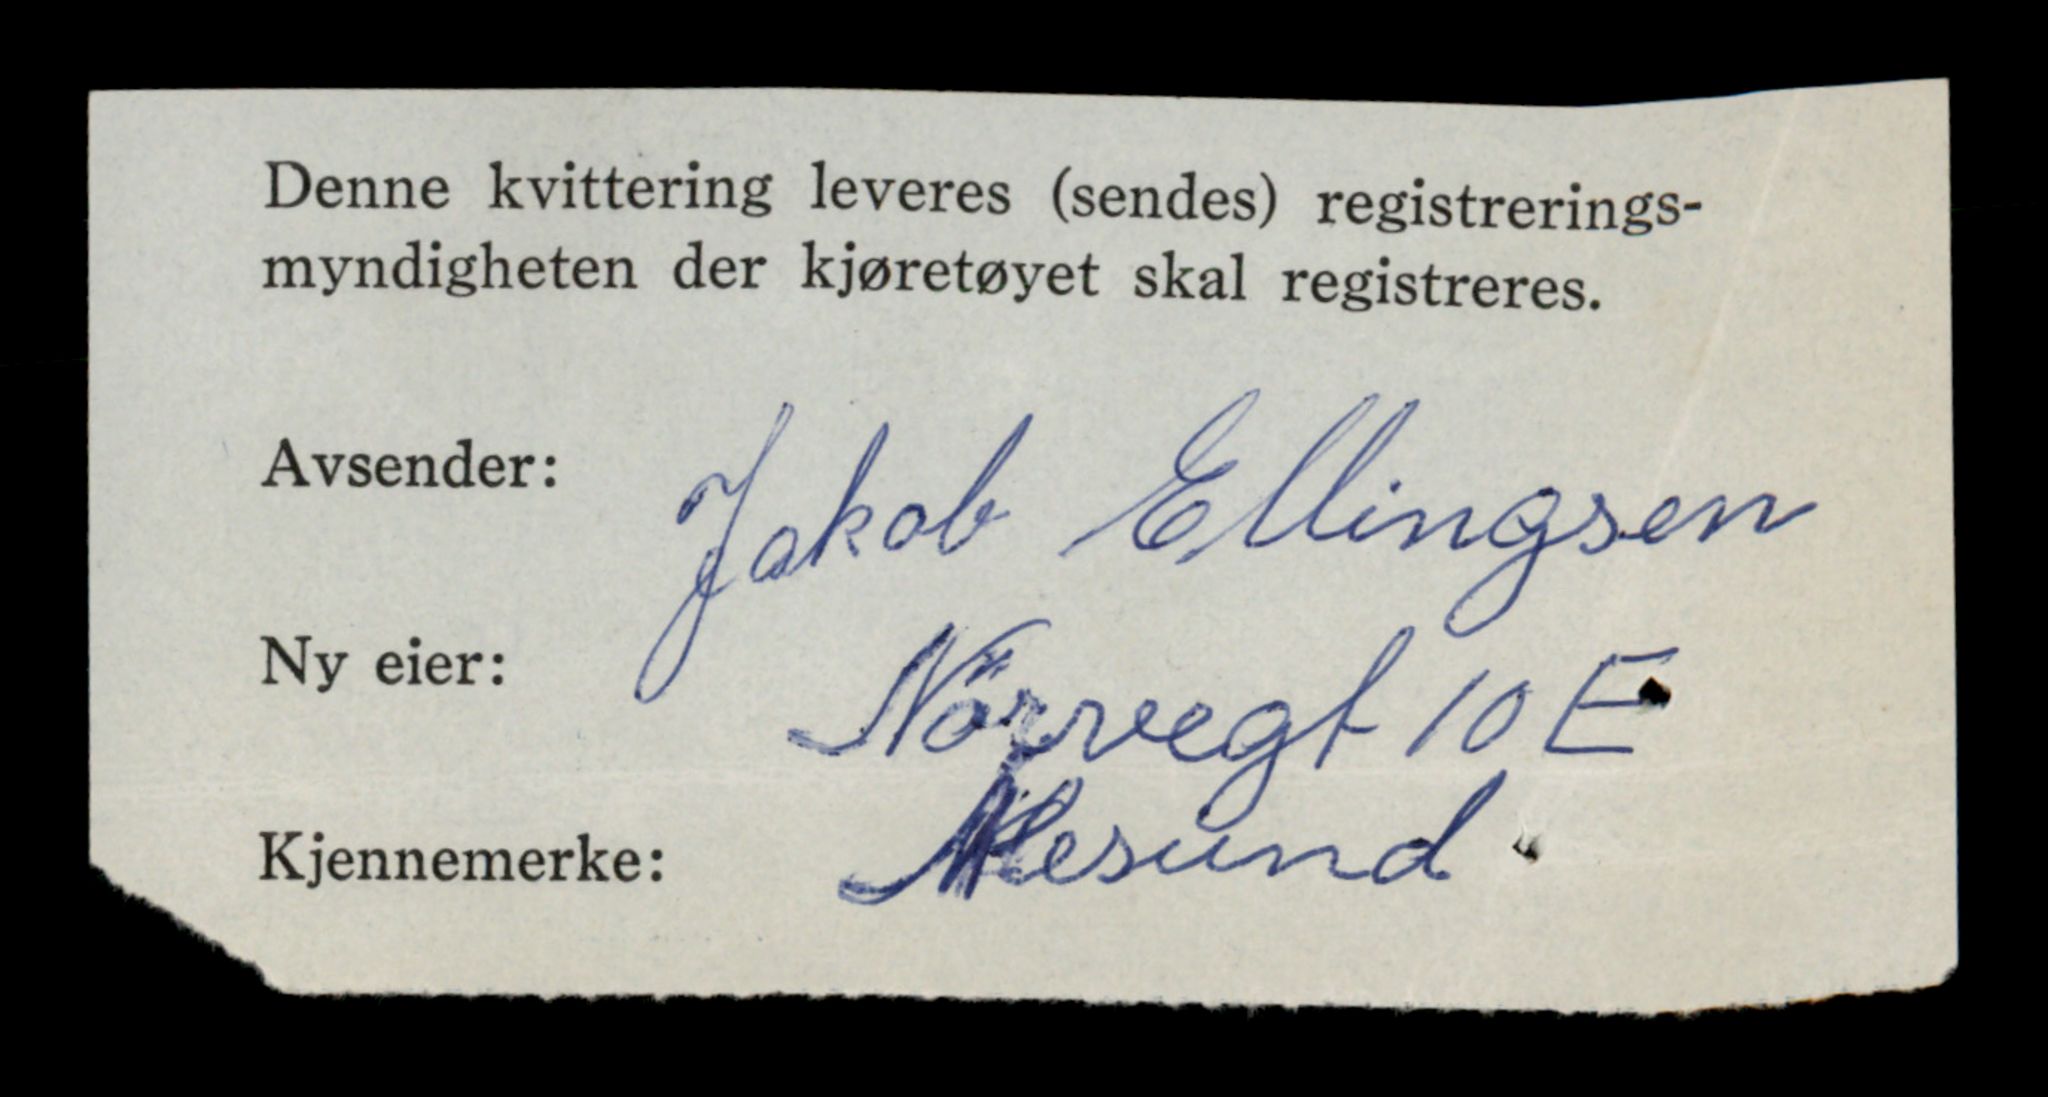 Denne kvittering leveres (sendes) registrerings-
myndigheten der kjøretøyet skal registreres.
Avsender: Jakob Ellingsen
Ny eier: Nörvegt 10 E
Kjennemerke: Alesund